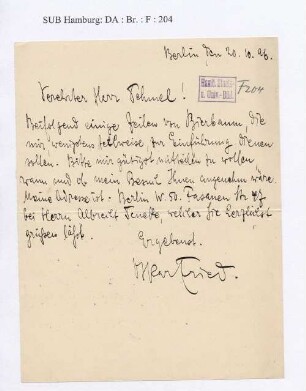 SUB Hamburg: DA : Br. : F : 204
Berlin den 20. 10. 96.
Verehrter Herr Dehmel!
F204
Beifolgend einige Zeilen von Bierbaum, die
mir wenigstens theilweise zur Einführung dienen
sollen. Bitte mir gütigst mittheilen zu wollen
wann und ob mein Besuch Ihnen angenehm wäre.
Meine Adresse ist. Berlin W. 50. Fasanen Str
bei Herrn Albrecht welcher Sie herzlichst
grüßen läßt.
Ergebenst.
Oskar Fried.